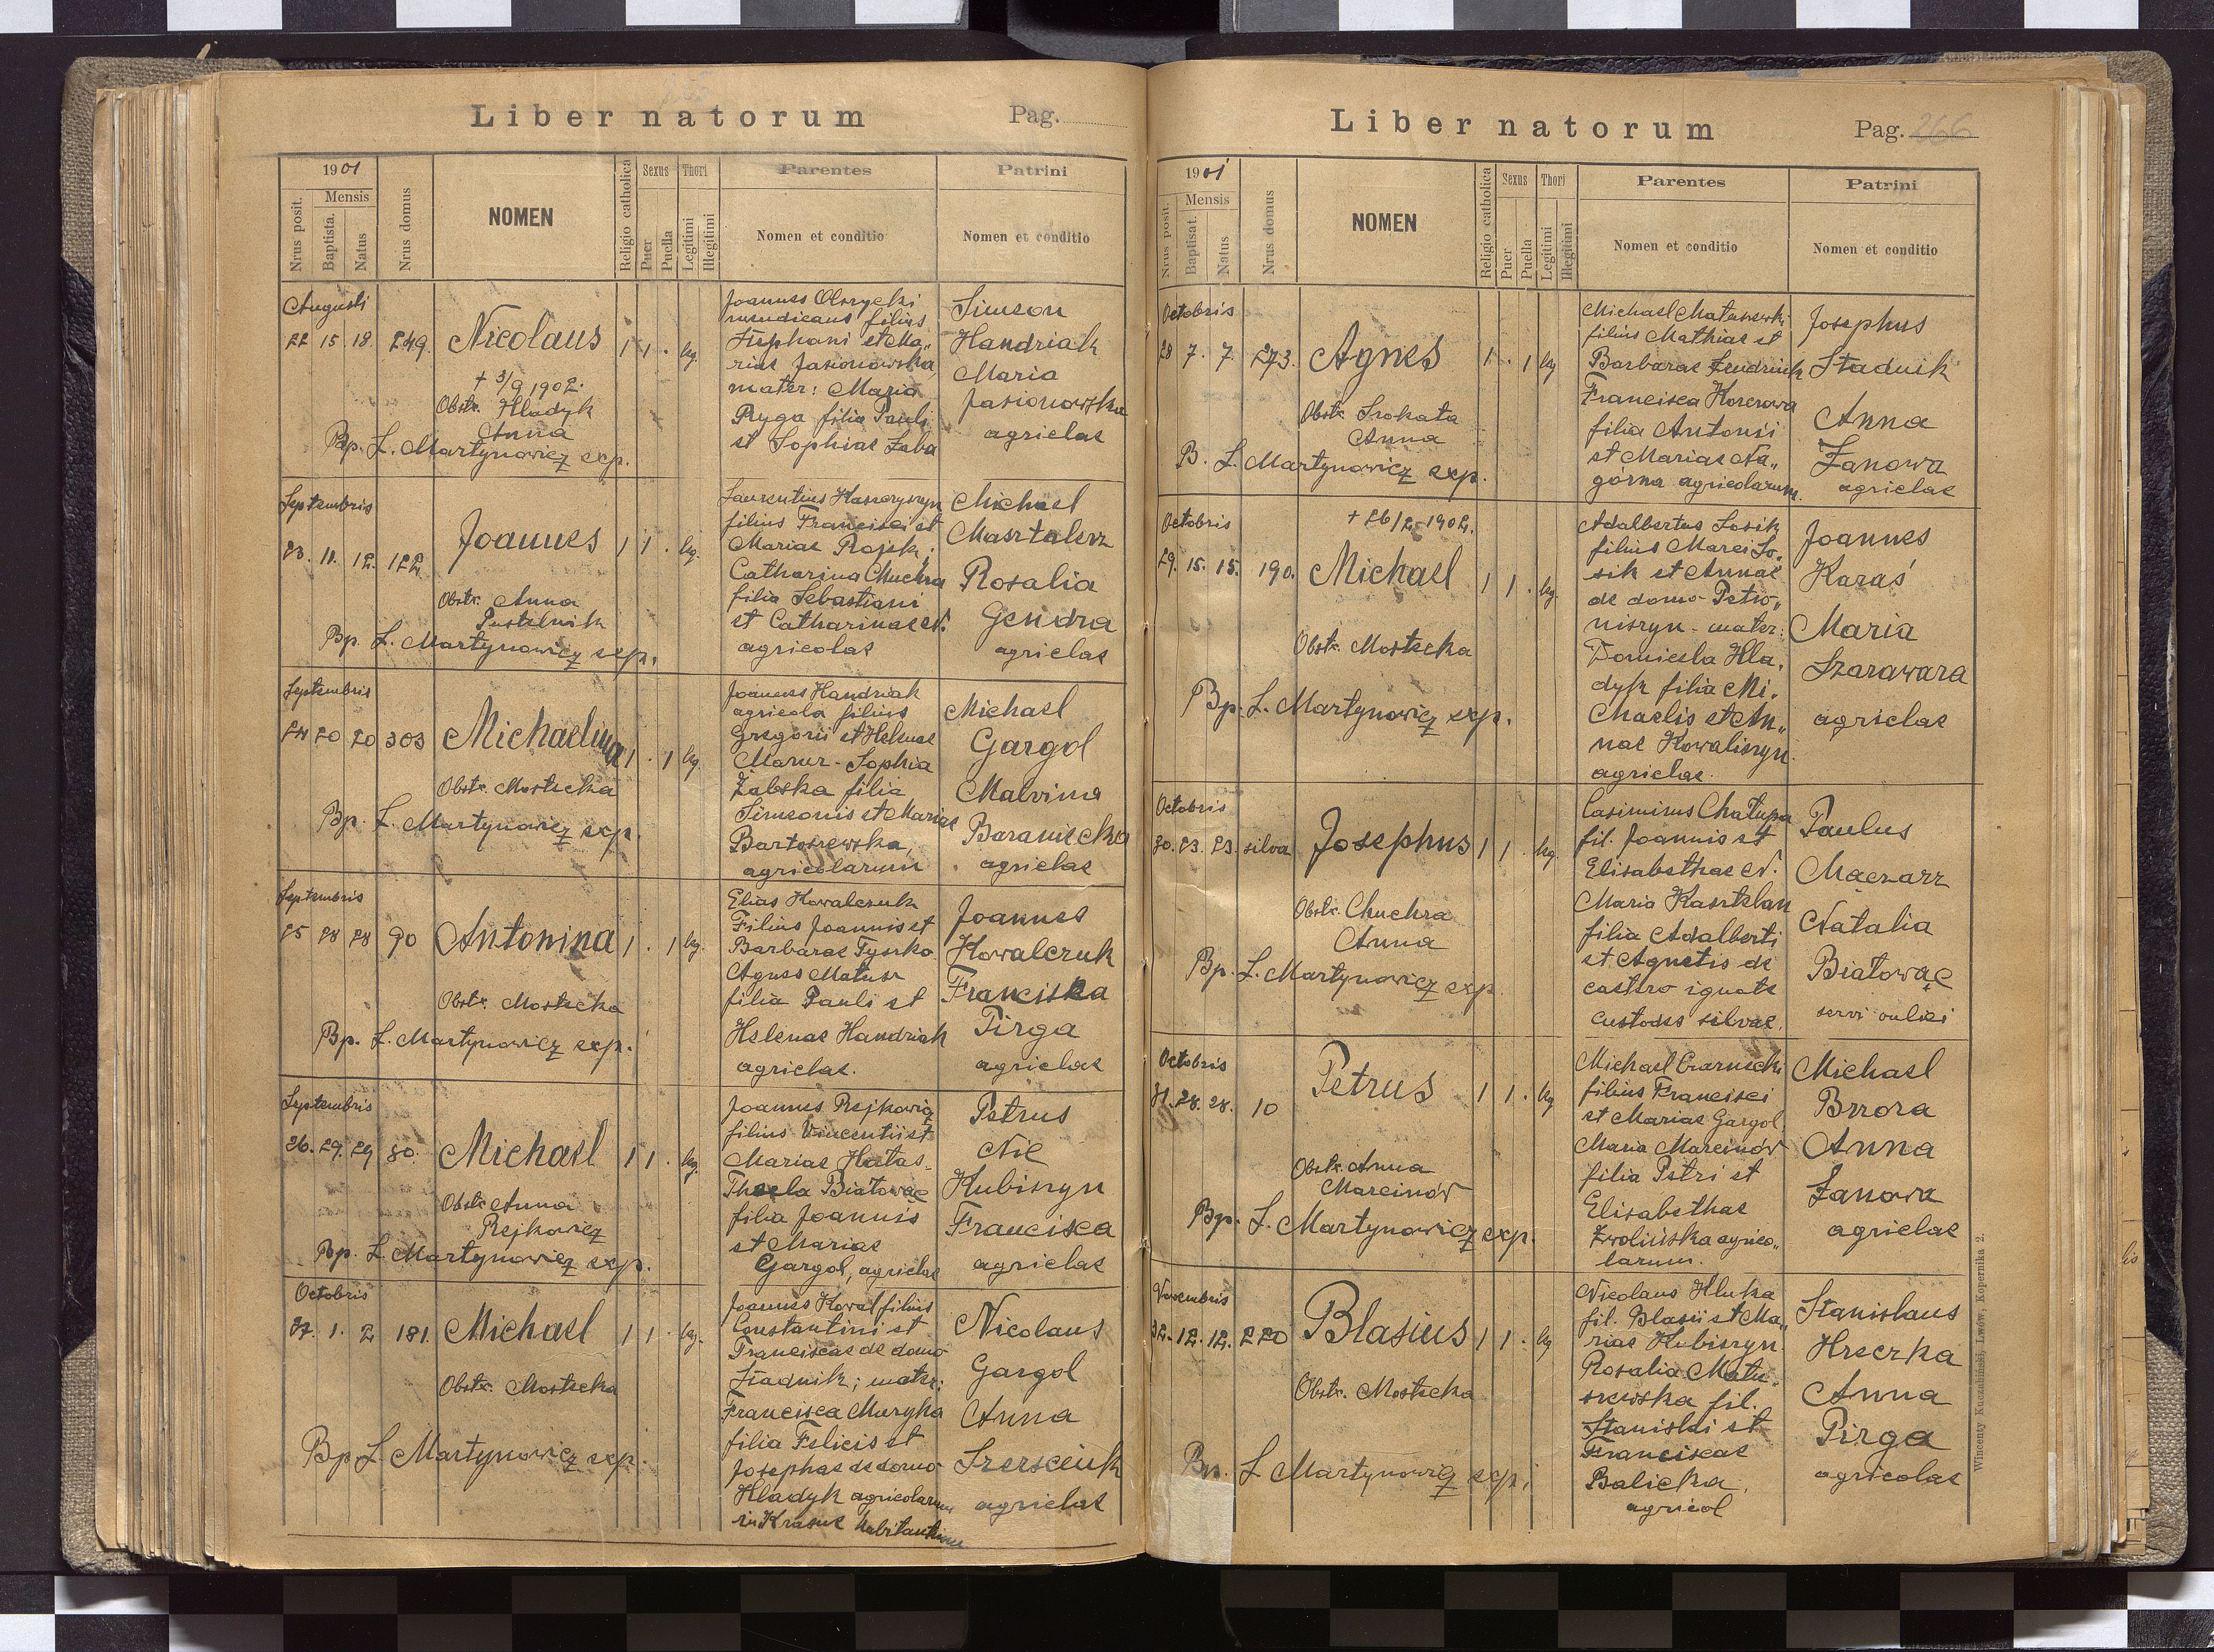 Liber natorum Pag.
1901
Mensis
Nrus posit.
Baptista.
Natus
Nrus domus
NOMEN
Religio catholica
Sexus
Puer
Puella
Thori
Legitimi
Illegitimi
Parentes
Nomen et conditio
Patrini
Nomen et conditio
Augusti
22 15. 18. 249. Nicolaus 1 1 . leg.
+ 3/9 1902.
Obstr. Hladyk
Anna
Bp. L. Martynowicz exp.
filius
Stephani et Ma„
riae Jasionowska,
mater: Maria
Pyga filia Pauli
et Sophiae Zaba
Simeon
Handriak
Maria
Jasionowska
agricolae
Septembris
23. 11. 12. 122. Joannes 1 1 . leg.
Obstr. Anna
Pustelnik
Bp. L. Martynowicz exp.
Laurentius
filius Francisci et
Mariae Rojek;
Catharina Chuchra
filia Sebastiani
et Catharinae N.
agricolae
Michael
Masztalerz
Rosalia
Gendra
agriclae
Septembris
24 20 20 303 Michaelina 1 . 1 leg.
Obstr. Mostecka
Bp. L. Martynowicz exp.
Joannes Handriak
agricola filius
Gregorii et Helenae
Mazur - Sophia
Żabska filia
Simeonis et Mariae
Bartoszewska,
agricolarum
Michael
Gargol
Malvina
Baraniecka
agriclae
Septembris
25 28 28 90 Antonina 1 . 1 leg.
Obstr. Mostecka
Bp. L. Martynowicz exp.
Elias Kowalczuk
Filius Joannis et
Barbarae Tyszko
Agnes Matusz
filia Pauli et
Helenae Handriak
agriclae.
Joannes
Kowalczuk
Franciska
Pirga
agriclae
Septembris
26. 29. 29 80. Michael 1 1 . leg.
Obstr. Anna
Rejkowicz
Bp. L. Martynowicz exp.
Joannes Rejkowicz
filius Vincentii et
Mariae Hałas.
Thecla Białowąc
filia Joannis
et Mariae
Gargol, agriclae
Petrus
Nic
Kubiszyn
Francisca
agriclae
Octobris
27. 1. 2. 181. Michael 1 1 . leg.
Obstr. Mostecka
Bp L. Martynowicz exp.
Joannes Kowal filius
Constantini et
Franciscae de domo
Stadnik; mater:
Francisca Muryka
filia Felicis et
Josephae de domo
Hladyk agricolarum
in Krasne habitantium
Nicolaus
Gargol
Anna
Szerszeiuk
agriclae
Liber natorum Pag. 266
1901
Mensis
Nrus posit.
Baptisat.
Natus
Nrus domus
NOMEN
Religio catholica
Sexus
Puer
Puella
Thori
Legitimi
Illegitimi
Parentes
Nomen et conditio
Patrini
Nomen et conditio
Octobris
28 7. 7. 273. Agnes 1 . 1 leg
Obstr. Srokata
Anna
B. L. Martynowicz exp.
Michael Matuszewski
filius Mathiae et
Barbarae
Francisca
filia Antonii
et Mariae Na„
górna agricolarum.
Josephus
Stadnik
Anna
Zanowa
agriclae
Octobris
+ 26/2 1902.
29. 15. 15. 190. Michael 1 1 . leg.
Obstr. Mostecka
Bp. L. Martynowicz exp.
Adalbertus Łosik
filius Marci Ło„
sik et Annae
de domo Petro„
niszyn - mater:
Domicela Hla„
dyk filia Mi„
chaelis et An„
nae Kowaliszyn.
agriclae.
Joannes
Karaś
Maria
Szarawara
agriclae
Octobris
30. 23. 23. silva Josephus 1 1 . leg.
Obstr. Chuchra
Anna
Bp. L. Martynowicz exp.
Casimirus Chałupa
fil. Joannis et
Elisabethae N.
Maria Kasztelan
filia Adalberti
et Agnetis de
castro ignote
custodes silvae.
Paulus
Maczarz
Natalia
Białowąc
servi aulici
Octobris
31. 28. 28. 10 Petrus 1 1 . leg
Obstr. Anna
Marcinów
Bp. L. Martynowicz exp.
Michael Czarnecki
filius Francisci
et Mariae Gargol.
Maria Marcinów
filia Petri et
Elisabethae
Zwolińska agrico„
larum.
Michael
Brzoza
Anna
Zanowa
agriclae
Novembris
32. 12. 12. 220 Blasius 1 1 . leg
Obstr. Mostecka
Bp. L Martynowicz exp.
Nicolaus Hluka
fil. Blasii et Ma„
riae Kubiszyn.
Rosalia Matu„
szewska fil.
Stanislai et
Franciscae
Balicka.
agricol
Stanislaus
Hreczka
Anna
Pirga
agricolae
Wincenty Kuczabiński, Lwów, Kopernika 2.